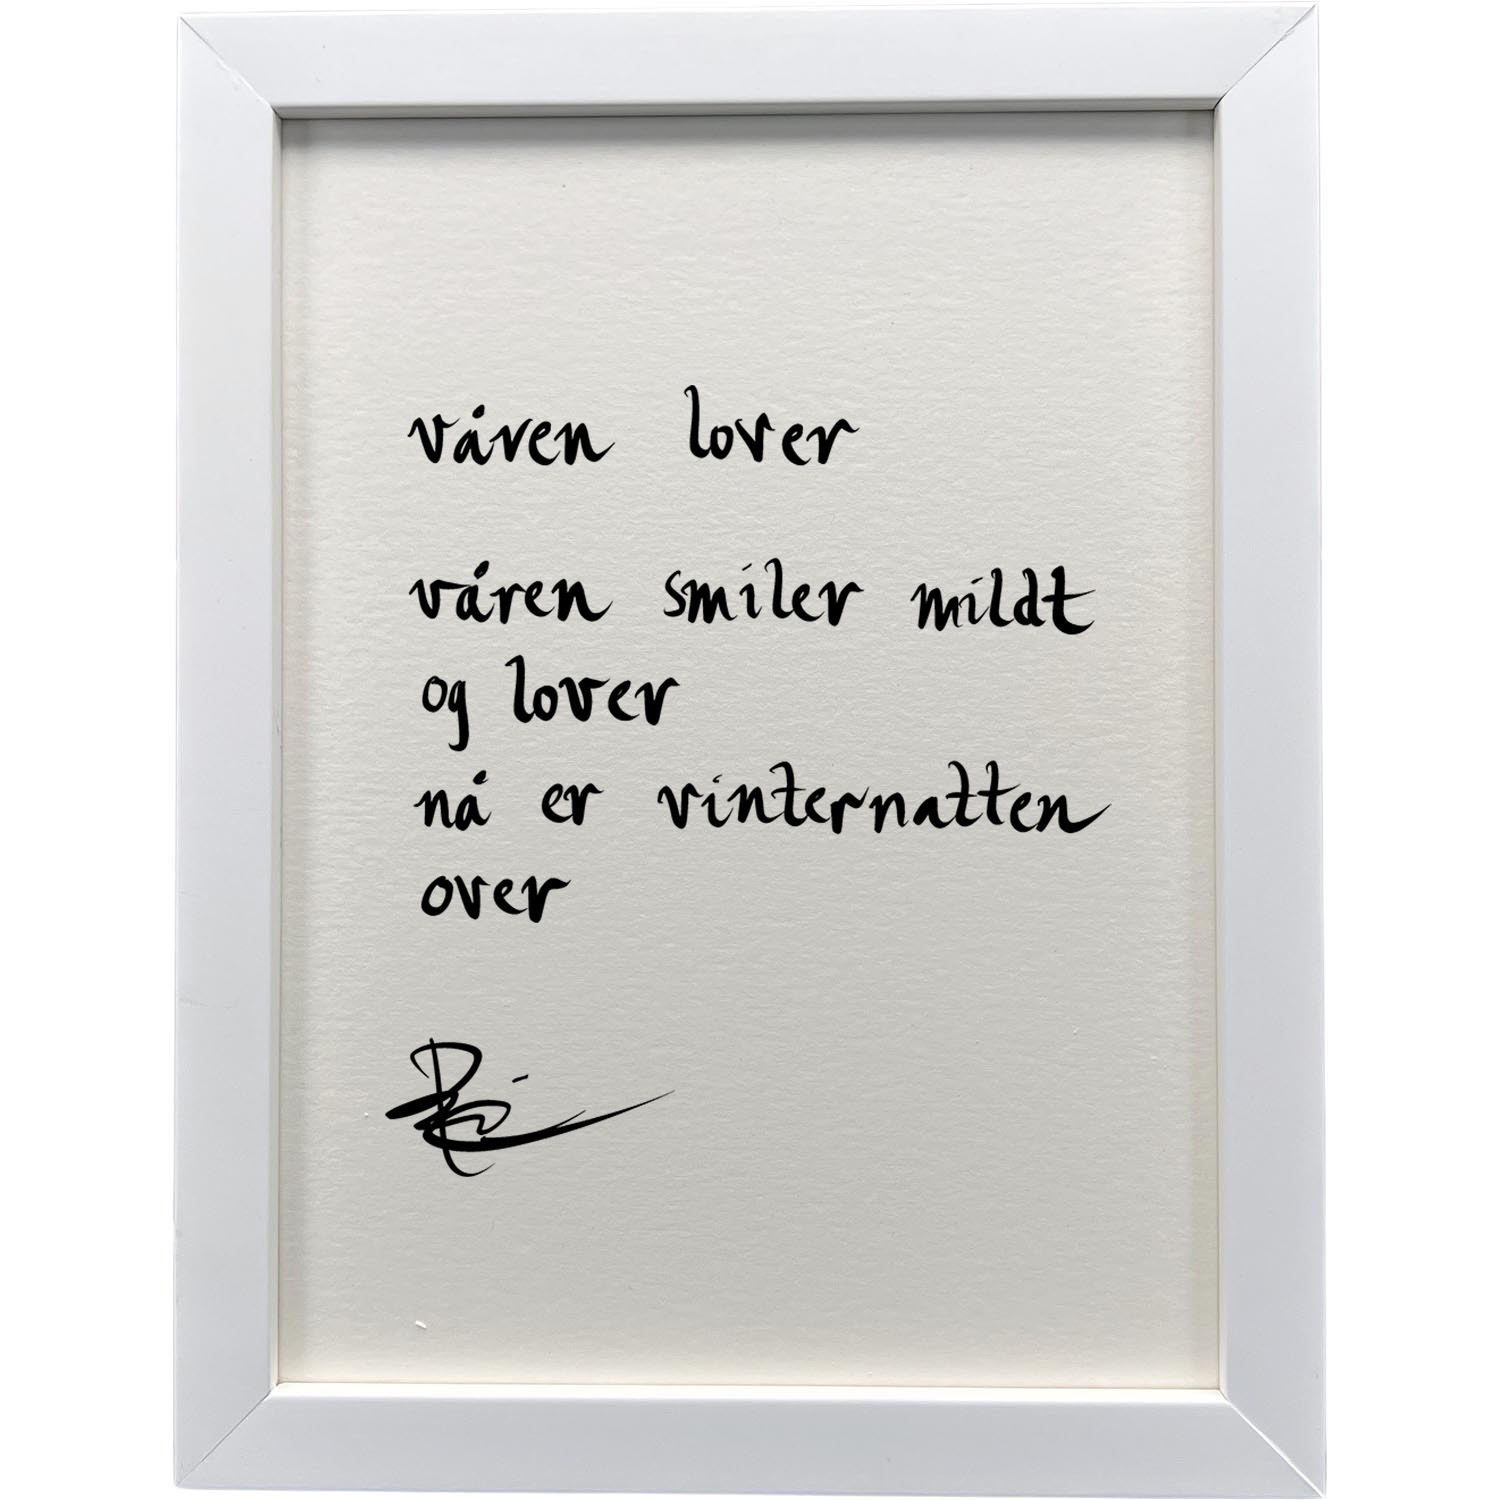 våren lover
våren smiler mildt
og lover
nå er vinternatten
over